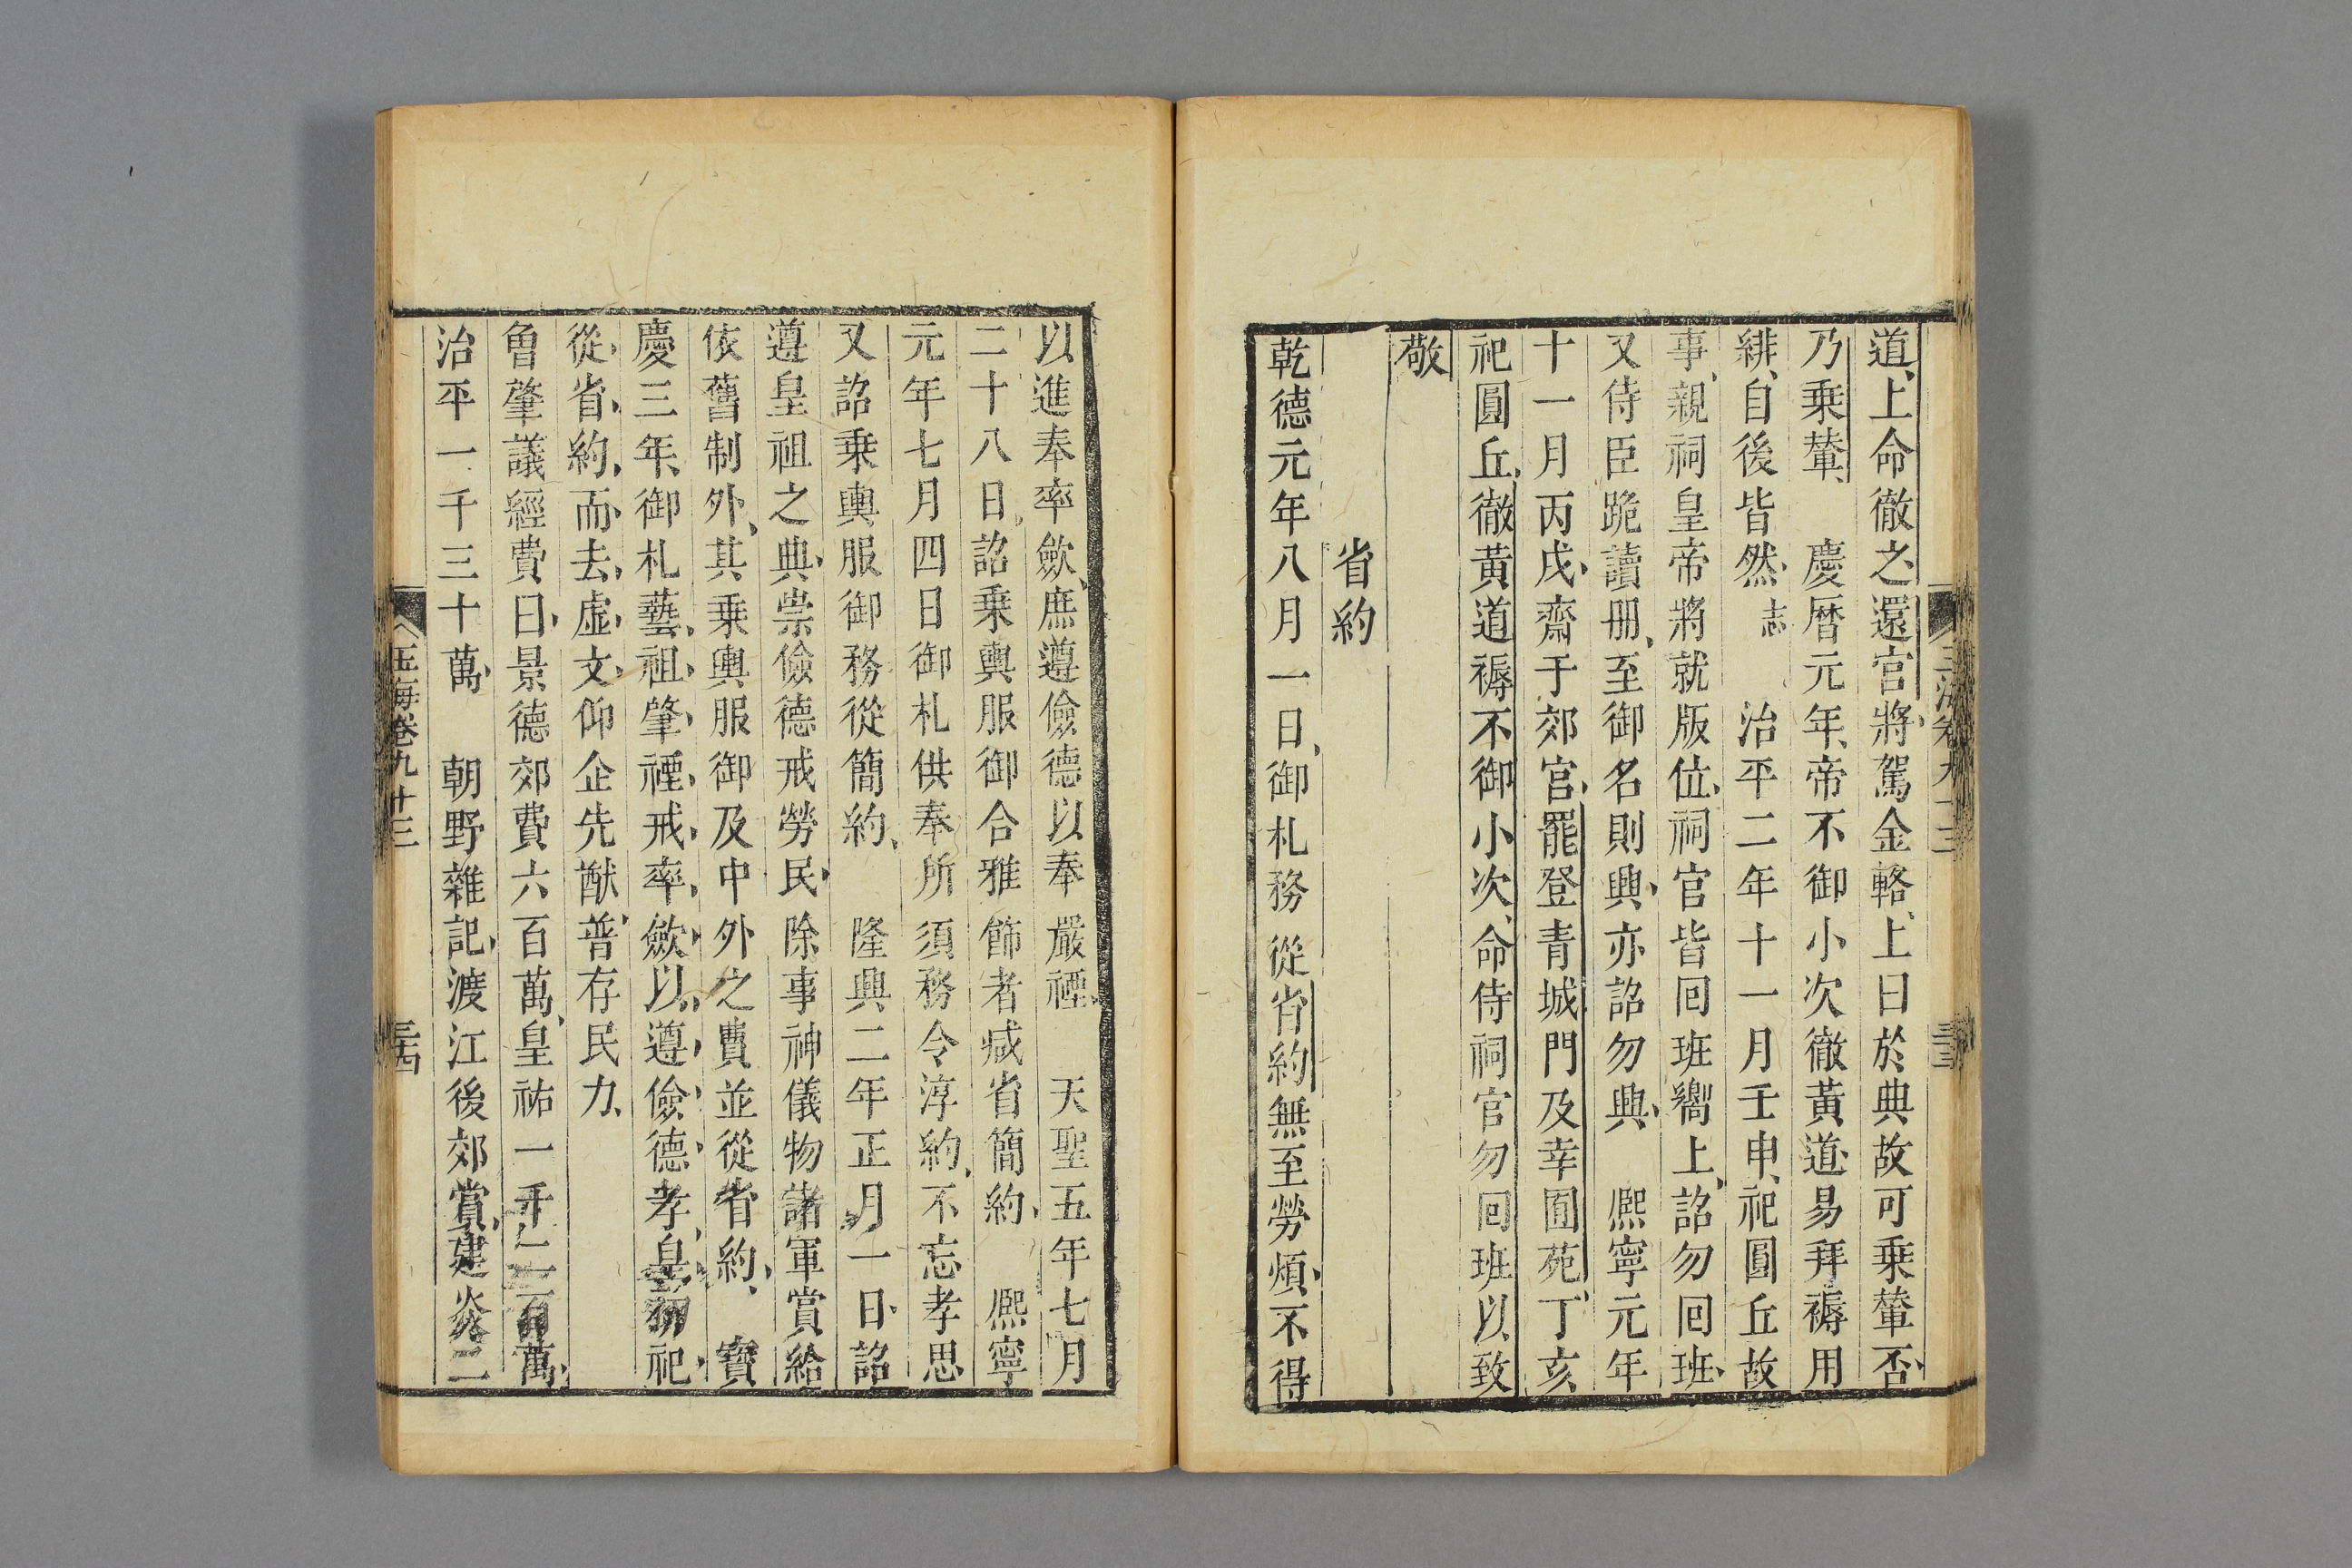 道上命徹之還宮將駕金輅上曰於典故可乗輦否
乃乗輦　慶曆元年帝不御小次徹黃道易拜褥用
緋自後皆然志　治平二年十一月壬申祀圓丘故
事親祠皇帝將就版位祠官皆回班嚮上詔勿回班
又侍臣跪讀册至御名則興亦詔勿興　熈寧元年
十一月丙戌齋于郊宮罷登青城門及幸囿苑丁亥
祀圓丘徹黃道褥不御小次命侍祠官勿回班以致
敬
省約
乾德元年八月一日御札務從省約無至勞煩不得
以進奉率歛庶遵儉德以奉嚴禋　天聖五年七月
二十八日詔乗輿服御合雅飾者咸省簡約　熈寧
元年七月四日御札供奉所須務令淳約不忘孝思
又詔乗輿服御務從簡約　隆興二年正月一日詔
遵皇祖之典崇儉德戒勞民除事神儀物諸軍賞給
依舊制外其乗輿服御及中外之費並從省約　寶
慶三年御札藝祖肇禋戒率歛以遵儉德孝皇初祀
從省約而去虛文仰企先猷普存民力
曾肇議經費曰景德郊費六百萬皇祐一千二百萬
治平一千三十萬　朝野雜記渡江後郊賞建炎二
玉海卷九十三
三十四